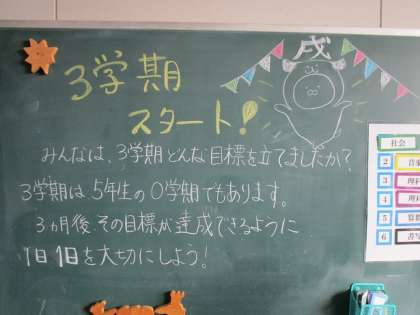 戌
3学期
スタート!
みんなは、3学期どんな目標を立てましたか?
3学期は5年生の0学期でもあります。
3ヵ月後、その目標が達成できるように
1日1日を大切にしよう!
社会
2 音楽
3 理科
4 理科
5 算数
6 書写